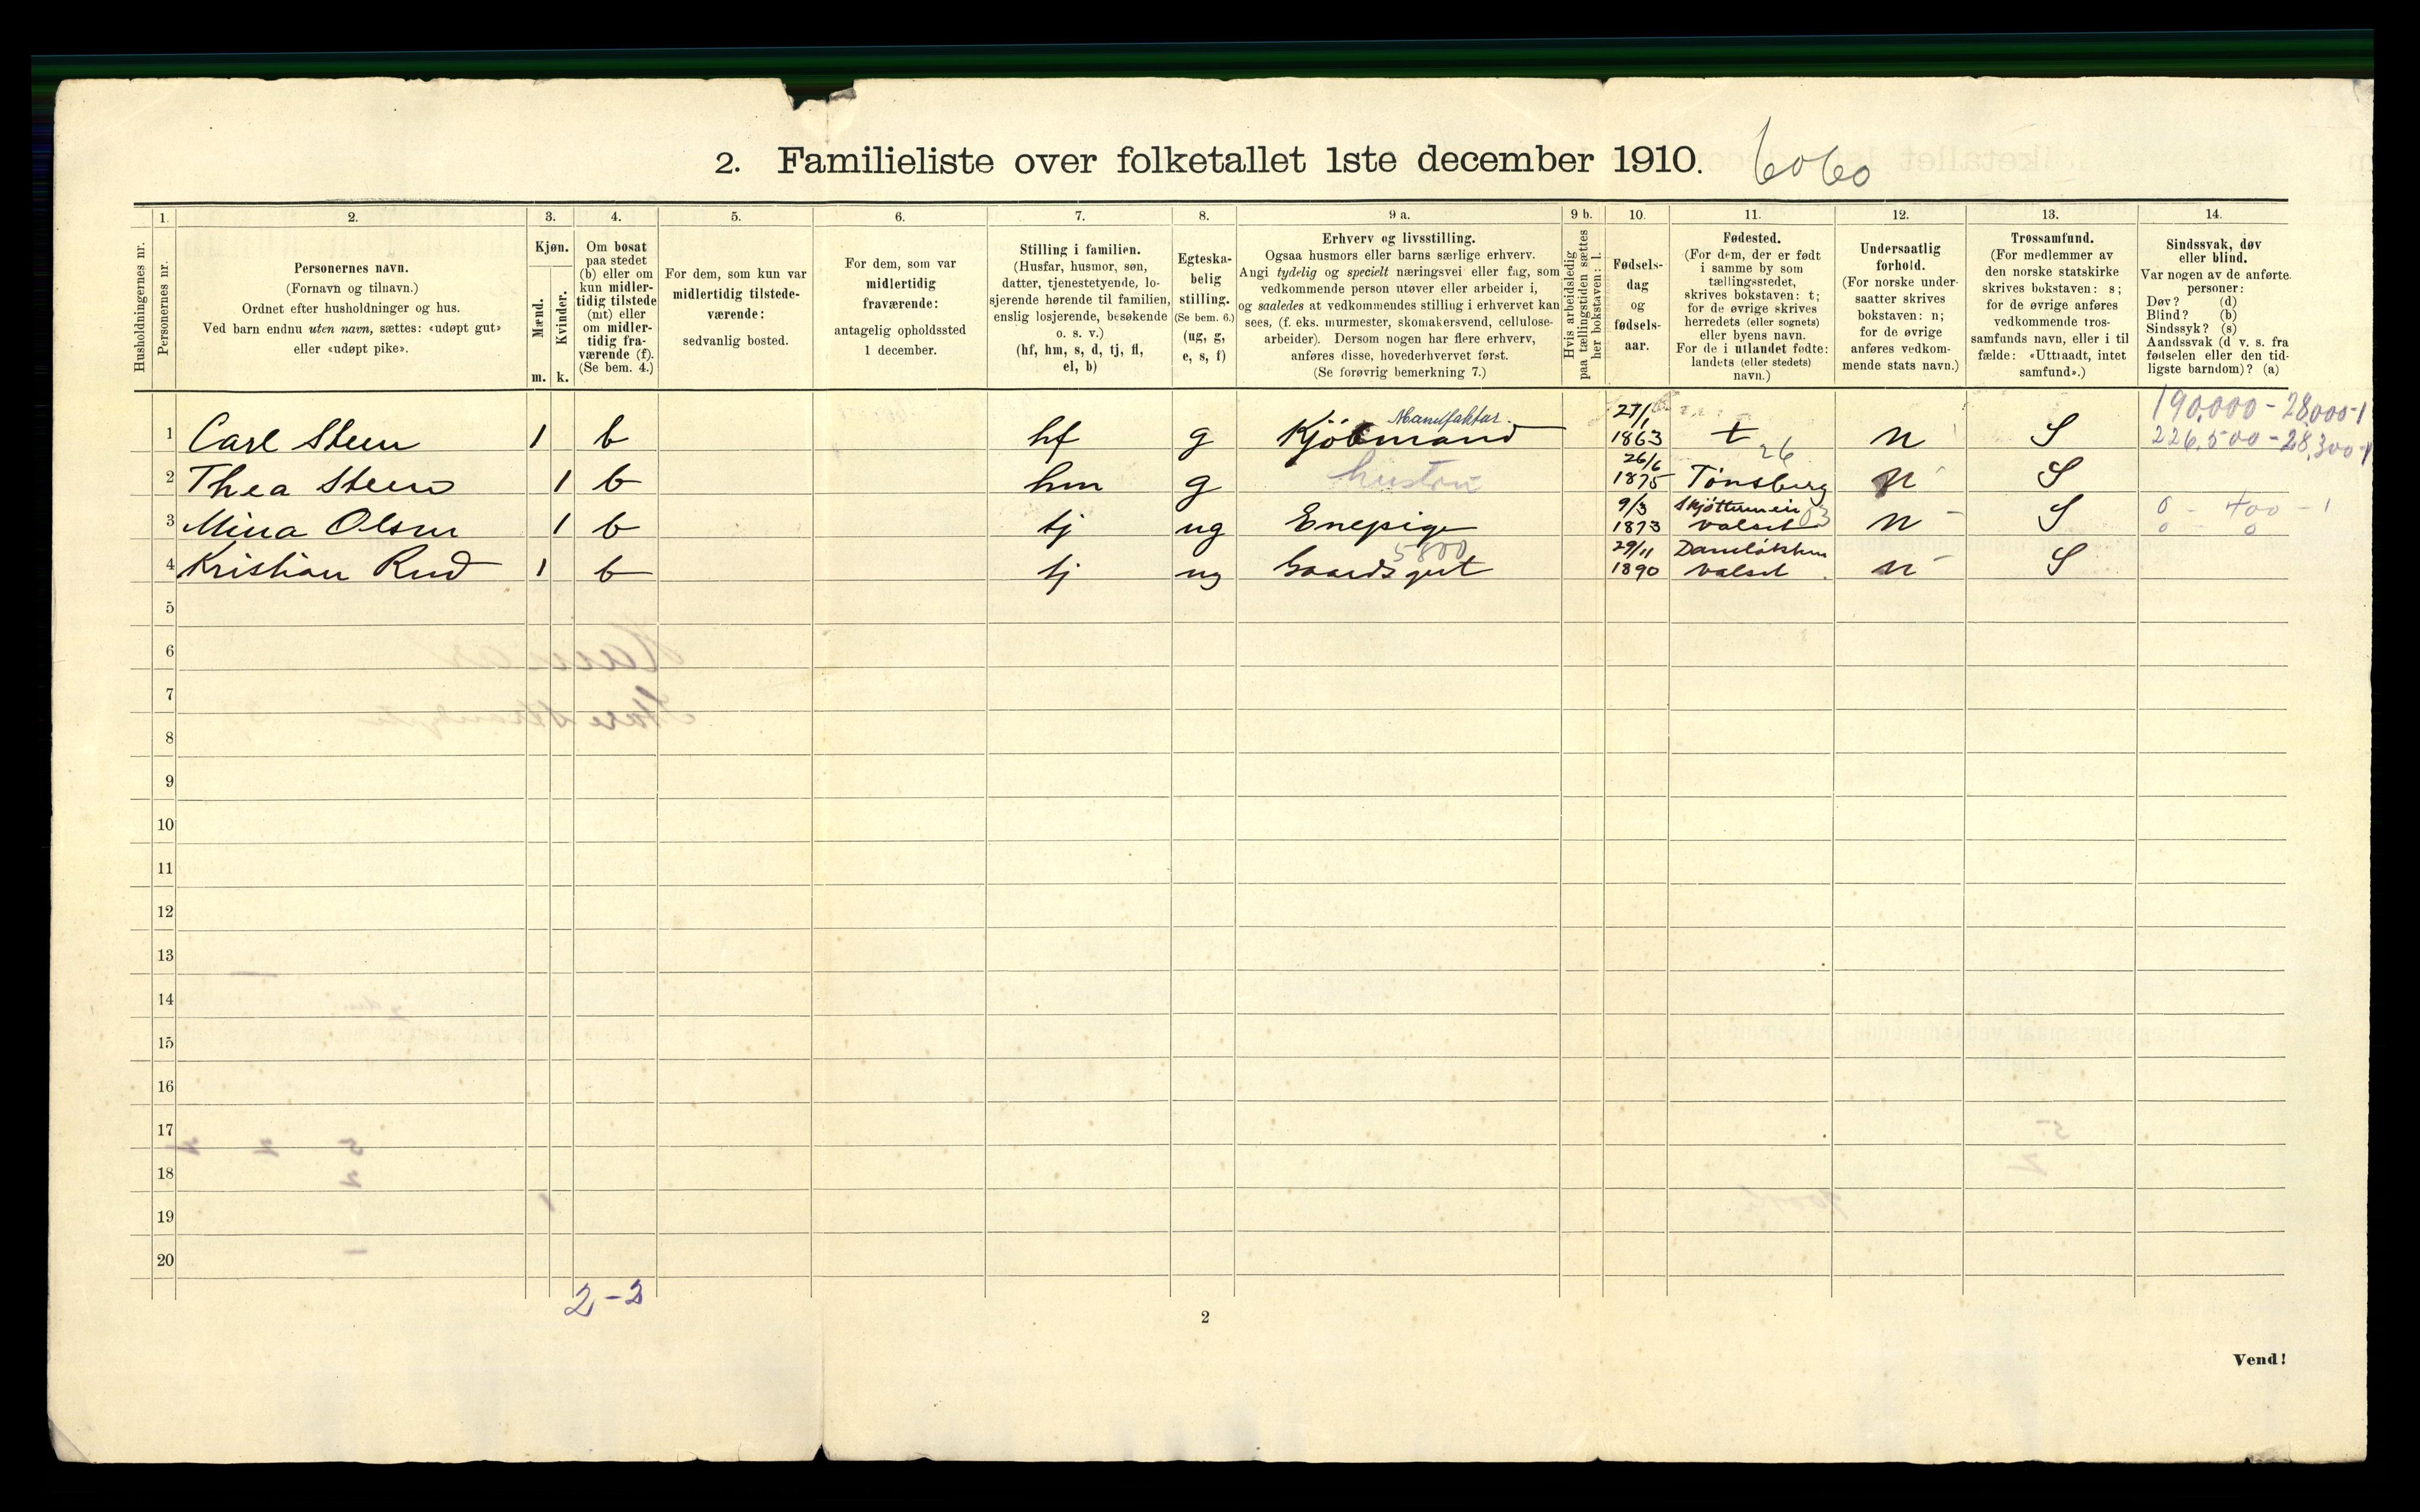 2. Familieliste over folketallet 1ste december 1910. 6060
Husholdningernes nr.
1.
Personernes nr.
2.
Personernes navn.
(Fornavn og tilnavn.)
Ordnet efter husholdninger og hus.
Ved barn endnu uten navn, sættes: «udøpt gut»
eller «udøpt pike».
3.
Kjøn.
Mænd.
Kvinder.
m. k.
4.
Om bosat
paa stedet
(b) eller om
kun midler-
tidig tilstede
(mt) eller
om midler-
tidig fra-
værende (f).
(Se bem. 4.)
5.
For dem, som kun var
midlertidig tilstede-
værende:
sedvanlig bosted.
6.
For dem, som var
midlertidig
fraværende:
antagelig opholdssted
1 december.
7.
Stilling i familien.
(Husfar, husmor, søn,
datter, tjenestetyende, lo-
sjerende hørende til familien,
enslig losjerende, besøkende
o. s. v.)
(hf, hm, s, d, tj, fl,
el, b)
8.
Egteska-
belig
stilling.
(Se bem. 6.)
(ug, g,
e, s, f)
9 a.
Erhverv og livsstilling.
Ogsaa husmors eller barns særlige erhverv.
Angi tydelig og specielt næringsvei eller fag, som
vedkommende person utøver eller arbeider i,
og saaledes at vedkommendes stilling i erhvervet kan
sees, (f. eks. murmester, skomakersvend, cellulose-
arbeider). Dersom nogen har flere erhverv,
anføres disse, hovederhvervet først.
(Se forøvrig bemerkning 7.)
9 b.
Hvis arbeidsledig
paa tællingstiden sættes
her bokstaven: l.
10.
Fødsels-
dag
og
fødsels-
aar.
11.
Fødested.
(For dem, der er født
i samme by som
tællingsstedet,
skrives bokstaven: t;
for de øvrige skrives
herredets (eller sognets)
eller byens navn.
For de i utlandet fødte:
landets (eller stedets)
navn.)
12.
Undersaatlig
forhold.
(For norske under-
saatter skrives
bokstaven: n;
for de øvrige
anføres vedkom-
mende stats navn.)
13.
Trossamfund.
(For medlemmer av
den norske statskirke
skrives bokstaven: s;
for de øvrige anføres
vedkommende tros-
samfunds navn, eller i til
fælde: «Uttraadt, intet
samfund».)
14.
Sindssvak, døv
eller blind.
Var nogen av de anførte
personer:
Døv? (d)
Blind? (b)
Sindssyk? (s)
Aandssvak (d v. s. fra
fødselen eller den tid-
ligste barndom)? (a)
Manufaktur 27/1 190.000 - 28.000-1
1 Carl Steen 1 b hf g Kjøbmand 1863 t n S 226.500 - 28.300-1
26/6 26
2 Thea Steen 1 b hm g hustru 1875 Tønsberg n S
9/3 0 - 400 - 1
3 Mina Olsen 1 b tj ug Enepige 1873 Valset 03 n S 0 - 0
5800 29/11
4 Kristian Rud 1 b tj ug Gaardsgut 1890 Valset n S
5
6
7
8
9
10
11
12
13
14
15
16
17
18
19
20
2-2
2
Vend!